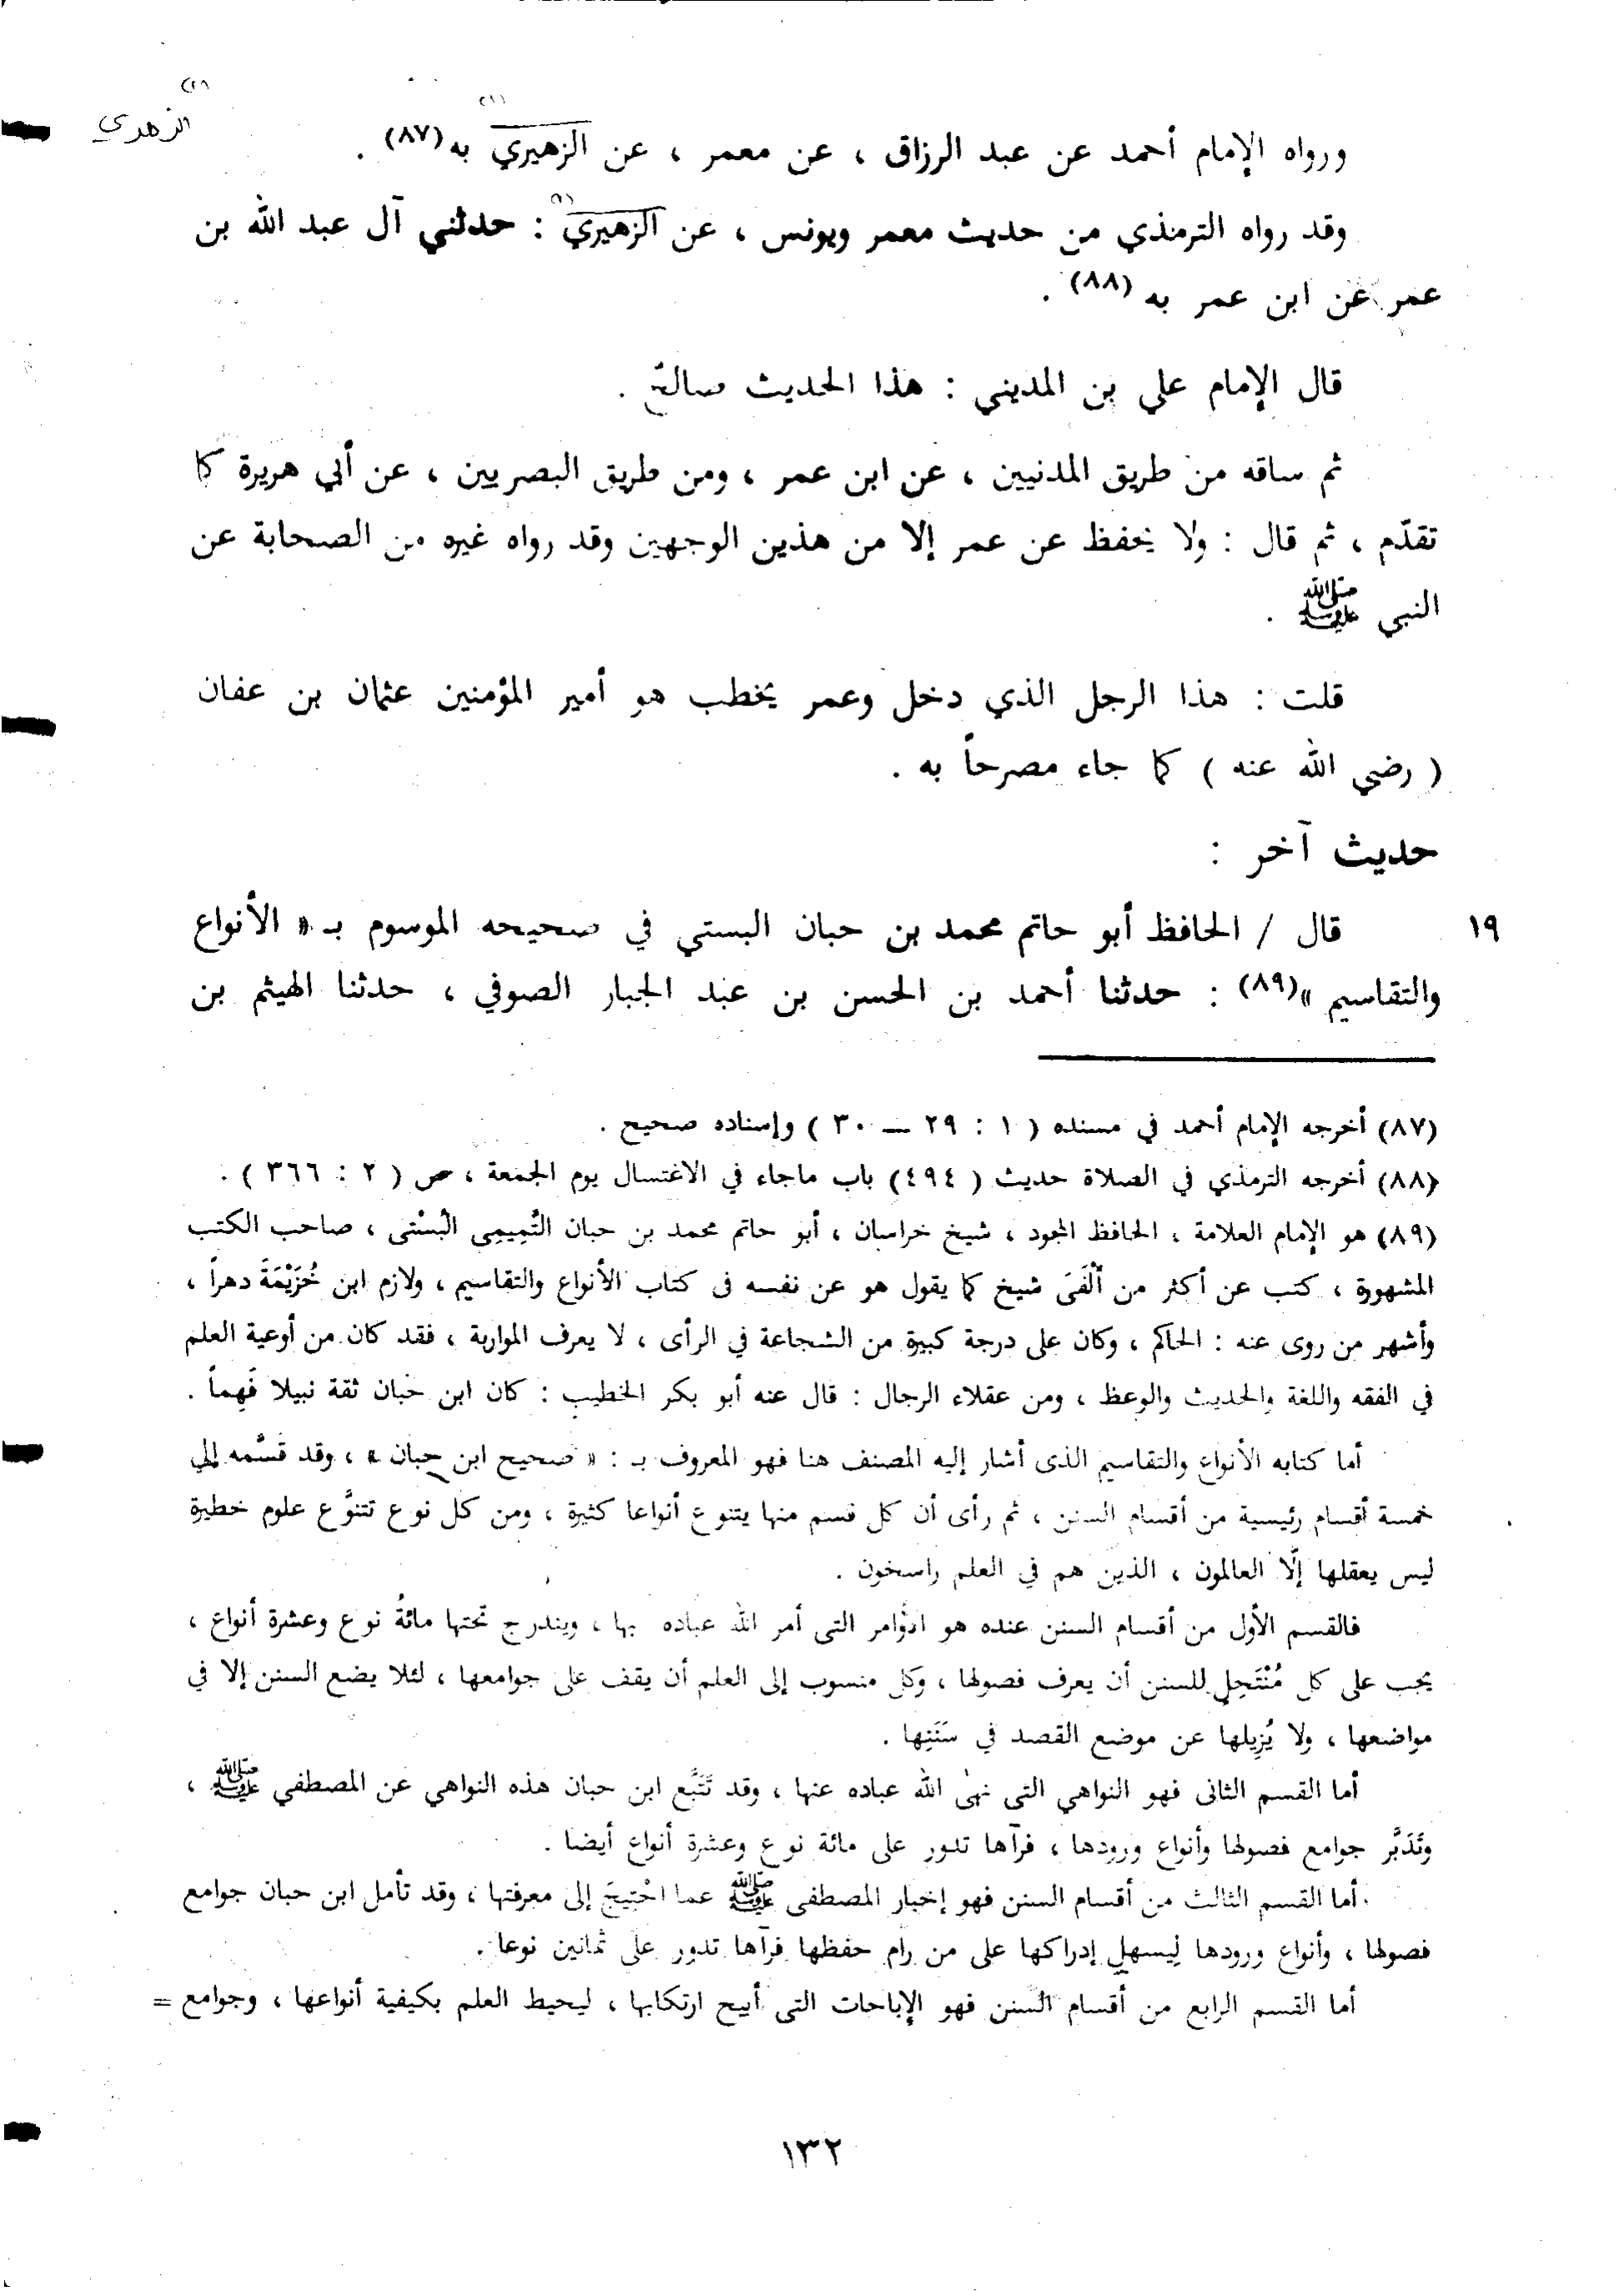 (٢)
(١)
الزهري
ورواه الإمام أحمد عن عبد الرزاق ، عن معمر ، عن الزهيري به(٨٧) .
(١)
وقد رواه الترمذي من حديث معمر ويونس ، عن الزهيري : حدثني آل عبد الله بن
عمر عن ابن عمر به (٨٨) .
قال الإمام علي بن المديني : هذا الحديث صالحٌ .
ثم ساقه من طريق المدنيين ، عن ابن عمر ، ومن طريق البصريين ، عن أبي هريرة كما
تقدّم ، ثم قال : ولا يحفظ عن عمر إلا من هذين الوجهين وقد رواه غيره من الصحابة عن
النبي ﷺ .
قلت : هذا الرجل الذي دخل وعمر يخطب هو أمير المؤمنين عثمان بن عفان
( رضي الله عنه ) كما جاء مصرحاً به .
حديث آخر :
١٩ قال / الحافظ أبو حاتم محمد بن حبان البستي في صحيحه الموسوم بـ « الأنواع
والتقاسيم »(٨٩) : حدثنا أحمد بن الحسن بن عبد الجبار الصوفي ، حدثنا الهيثم بن
(٨٧) أخرجه الإمام أحمد في مسنده ( ١ : ٢٩ — ٣٠ ) وإسناده صحيح .
(٨٨) أخرجه الترمذي في الصلاة حديث ( ٤٩٤ ) باب ماجاء في الاغتسال يوم الجمعة ، ص ( ٢ : ٣٦٦ ) .
(٨٩) هو الإمام العلامة ، الحافظ المجود ، شيخ خراسان ، أبو حاتم محمد بن حبان التَّمِيمِى البُسْتى ، صاحب الكتب
المشهورة ، كتب عن أكثر من أَلْفَىْ شيخ كما يقول هو عن نفسه فى كتاب الأنواع والتقاسيم ، ولازم ابن خُزَيْمَةَ دهراً ،
وأشهر من روى عنه : الحاكم ، وكان على درجة كبيرة من الشجاعة في الرأى ، لا يعرف المواربة ، فقد كان من أوعية العلم
في الفقه واللغة والحديث والوعظ ، ومن عقلاء الرجال : قال عنه أبو بكر الخطيب : كان ابن حبان ثقة نبيلا فَهِماً .
أما كتابه الأنواع والتقاسيم الذى أشار إليه المصنف هنا فهو المعروف بـ : « صحيح ابن حبان » ، وقد قسَّمه إلي
خمسة أقسام رئيسية من أقسام السنن ، ثم رأى أن كل قسم منها يتنوع أنواعا كثيرة ، ومن كل نوع تتنوَّع علوم خطيرة
ليس يعقلها إلَّا العالمون ، الذين هم في العلم راسخون .
فالقسم الأول من أقسام السنن عنده هو الأوامر التى أمر الله عباده بها ، ويندرج تحتها مائةُ نوع وعشرة أنواع ،
يجب على كل مُنْتَحِلٍ للسنن أن يعرف فصولها ، وكل منسوب إلى العلم أن يقف على جوامعها ، لئلا يضع السنن إلا في
مواضعها ، ولا يُزيلها عن موضع القصد في سَنَنِها .
أما القسم الثانى فهو النواهي التى نهى الله عباده عنها ، وقد تَتَبَّع ابن حبان هذه النواهي عن المصطفي ﷺ ،
وتَدَبَّر جوامع فصولها وأنواع ورودها ، فرآها تدور على مائة نوع وعشرة أنواع أيضا .
أما القسم الثالث من أقسام السنن فهو إخبار المصطفى ﷺ عما احْتِيجَ إلى معرفتها ، وقد تأمل ابن حبان جوامع
فصولها ، وأنواع ورودها لِيسهل إدراكها على من رام حفظها فرآها تدور على ثمانين نوعا .
أما القسم الرابع من أقسام السنن فهو الإباحات التى أبيح ارتكابها ، ليحيط العلم بكيفية أنواعها ، وجوامع =
١٣٢